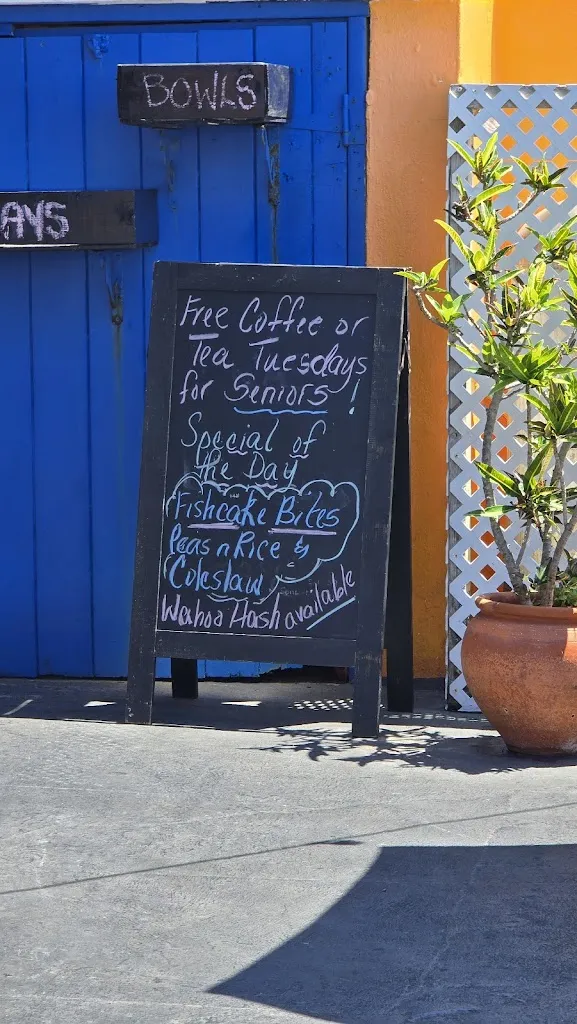 BOWLS
AYS
Free Coffee or
Tea Tuesdays
for Seniors !
Special of
the Day
Fishcake Bites
Peas n Rice &
Coleslaw
Wahoo Hash available